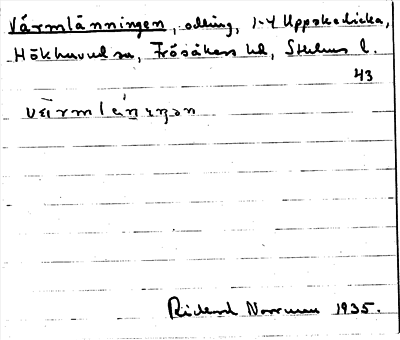 Värmlänningen, odling, 1-4 Uppskedicka,
Hökhuvud sn, Frösåkers hd, Sthlms l.
43
värmlännıŋən
Rickard Norrman 1935.